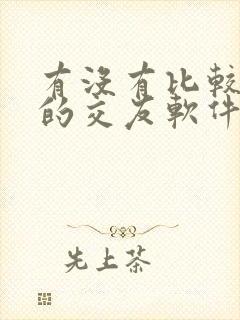 有沒有比較
的交友軟件
先上茶